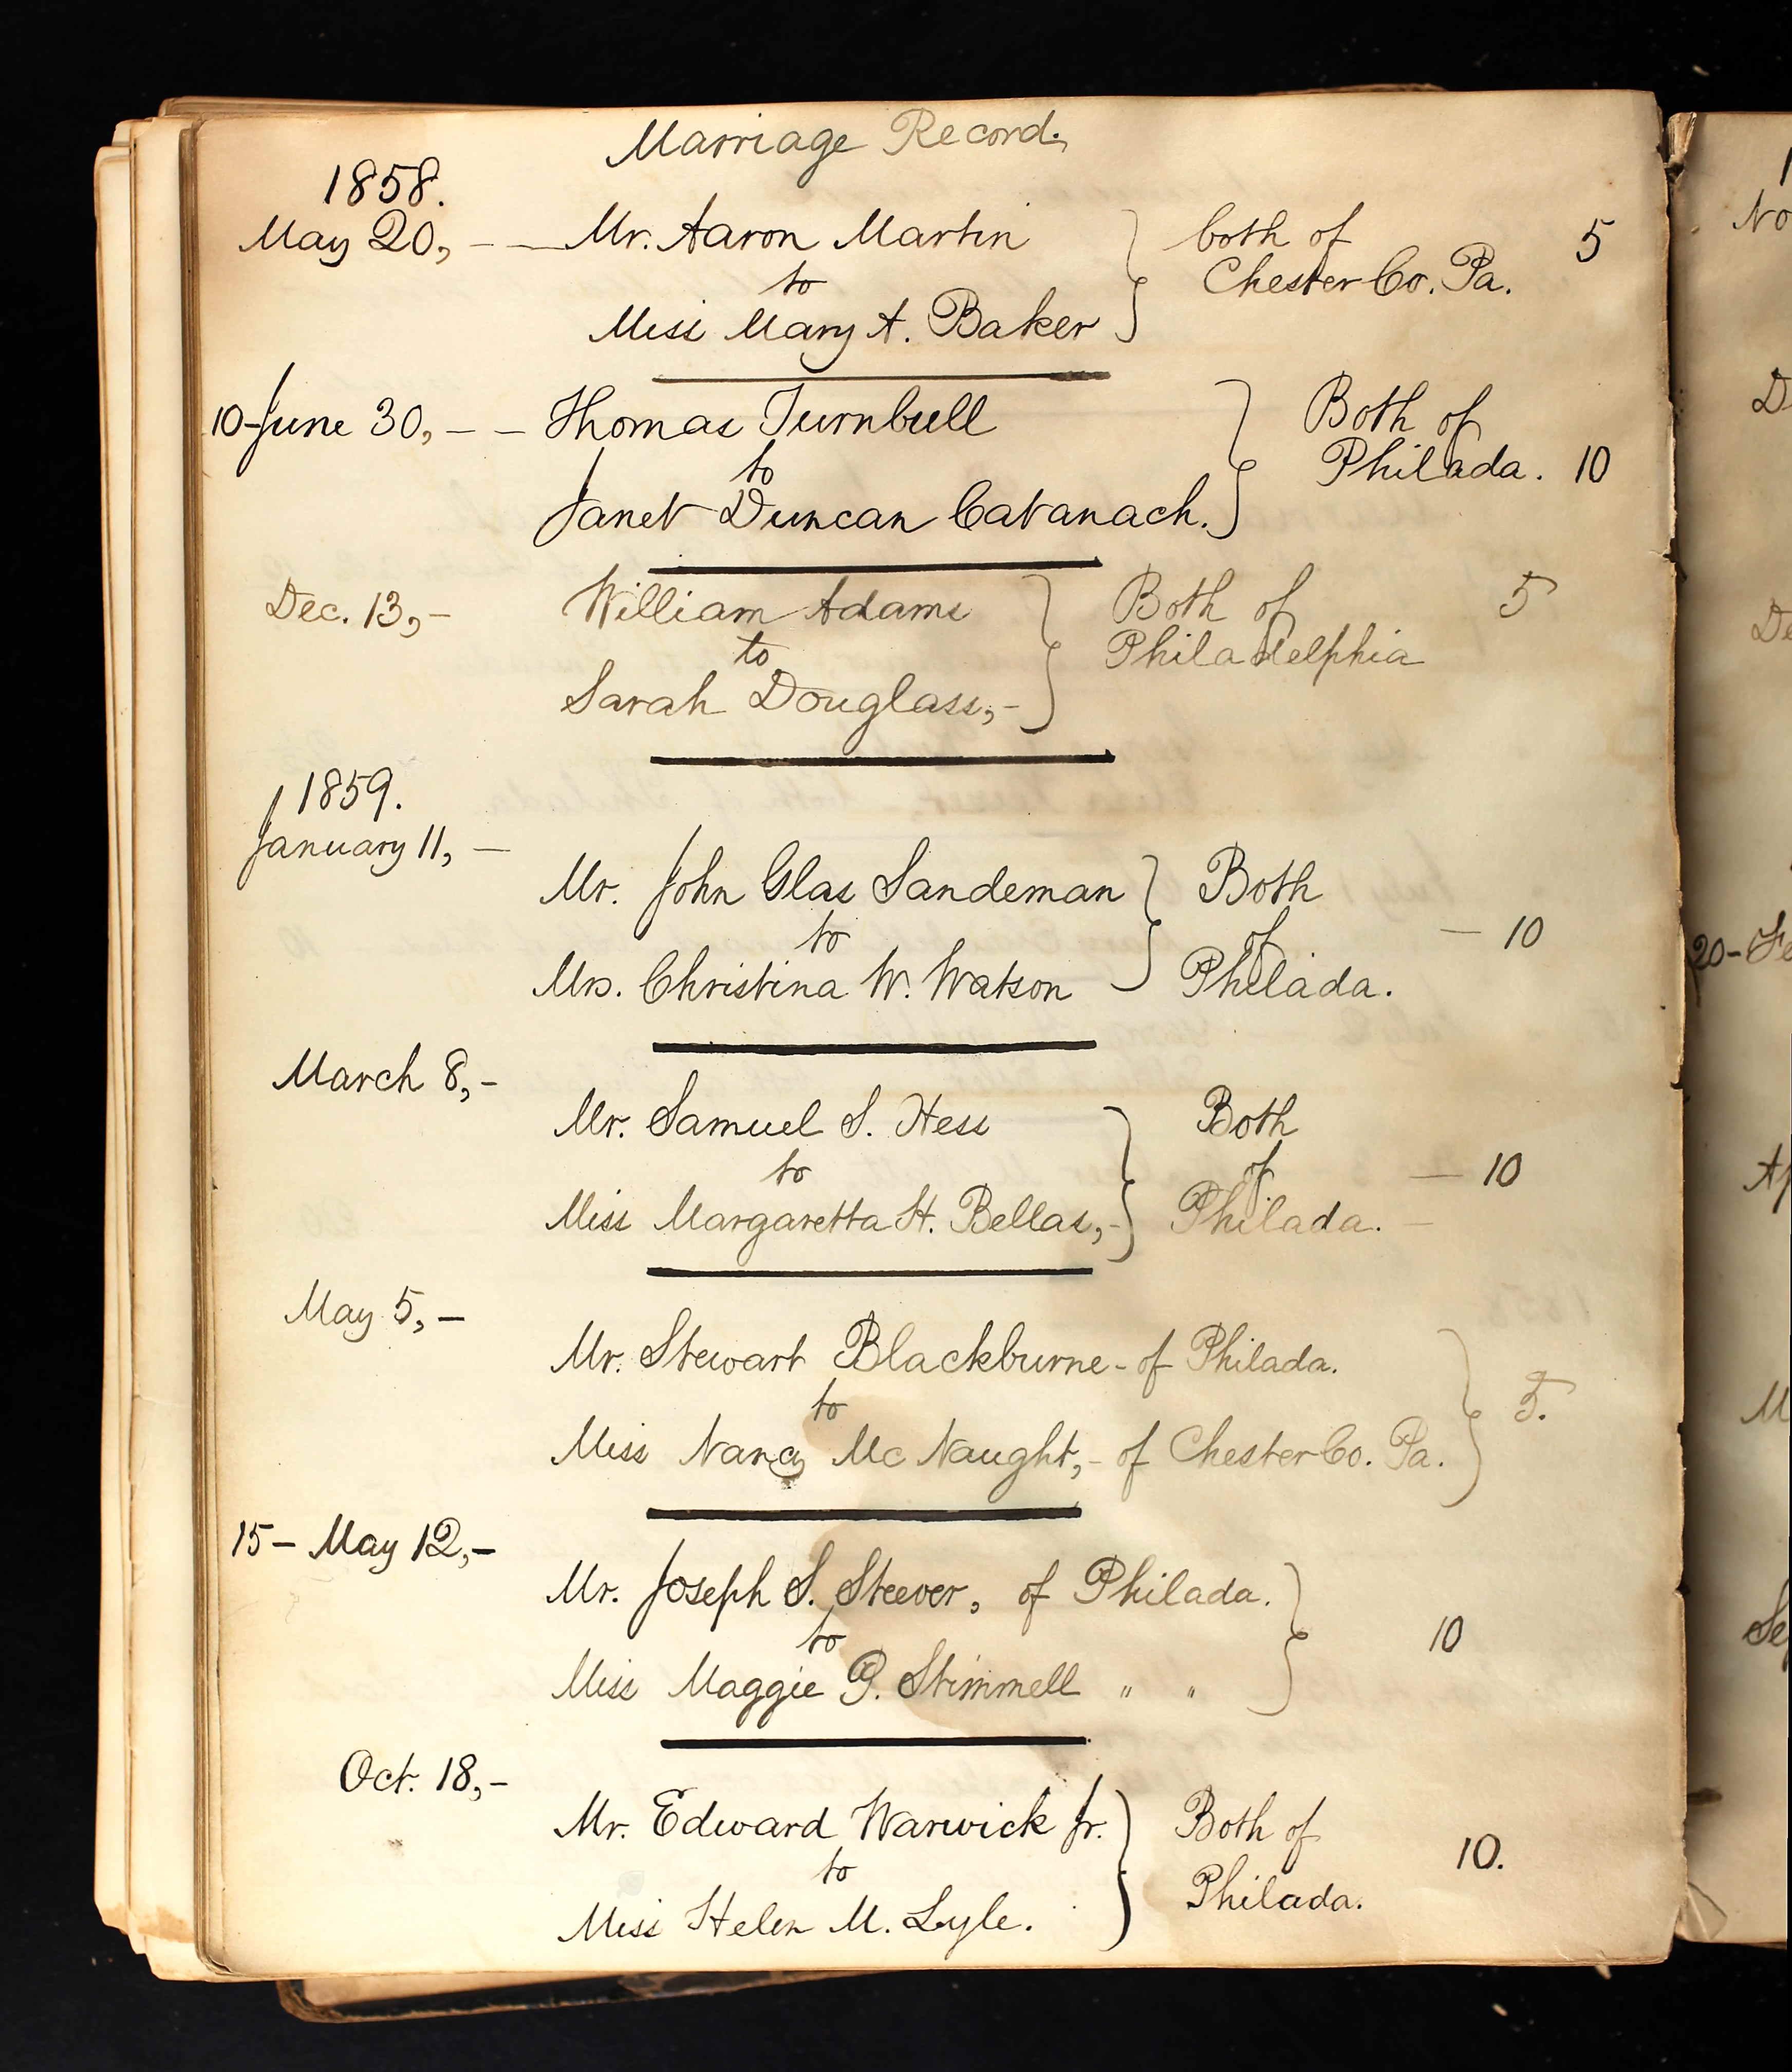 Marriage Record,
1858.
May 20, - — Mr. Aaron Martin } both of 5
to Chester Co. Pa.
Miss Mary A. Baker
10-June 30, - - Thomas Turnbull } Both of
to Philada. 10
Janet Duncan Cavanach.
Dec. 13, - William Adams } Both of 5
to Philadelphia
Sarah Douglass, -
1859.
January 11, -
Mr. John Glas Sandeman } Both
to of - 10
Mrs. Christina W. Watson Philada.
March 8, -
Mr. Samuel S. Hess } Both
to of - 10
Miss Margaretta H. Bellas, - Philada. -
May 5, -
Mr. Stewart Blackburne - of Philada.
to } 5.
Miss Nancy Mc Naught, - of Chester Co. Pa.
15 - May 12, -
Mr. Joseph S. Steever, of Philada.
to } 10
Miss Maggie G. Stimmell " "
Oct. 18, -
Mr. Edward Warwick Jr. } Both of
to 10.
Philada.
Miss Helen M. Lyle.
No
D
De
20- Fe
Ap
M
Se